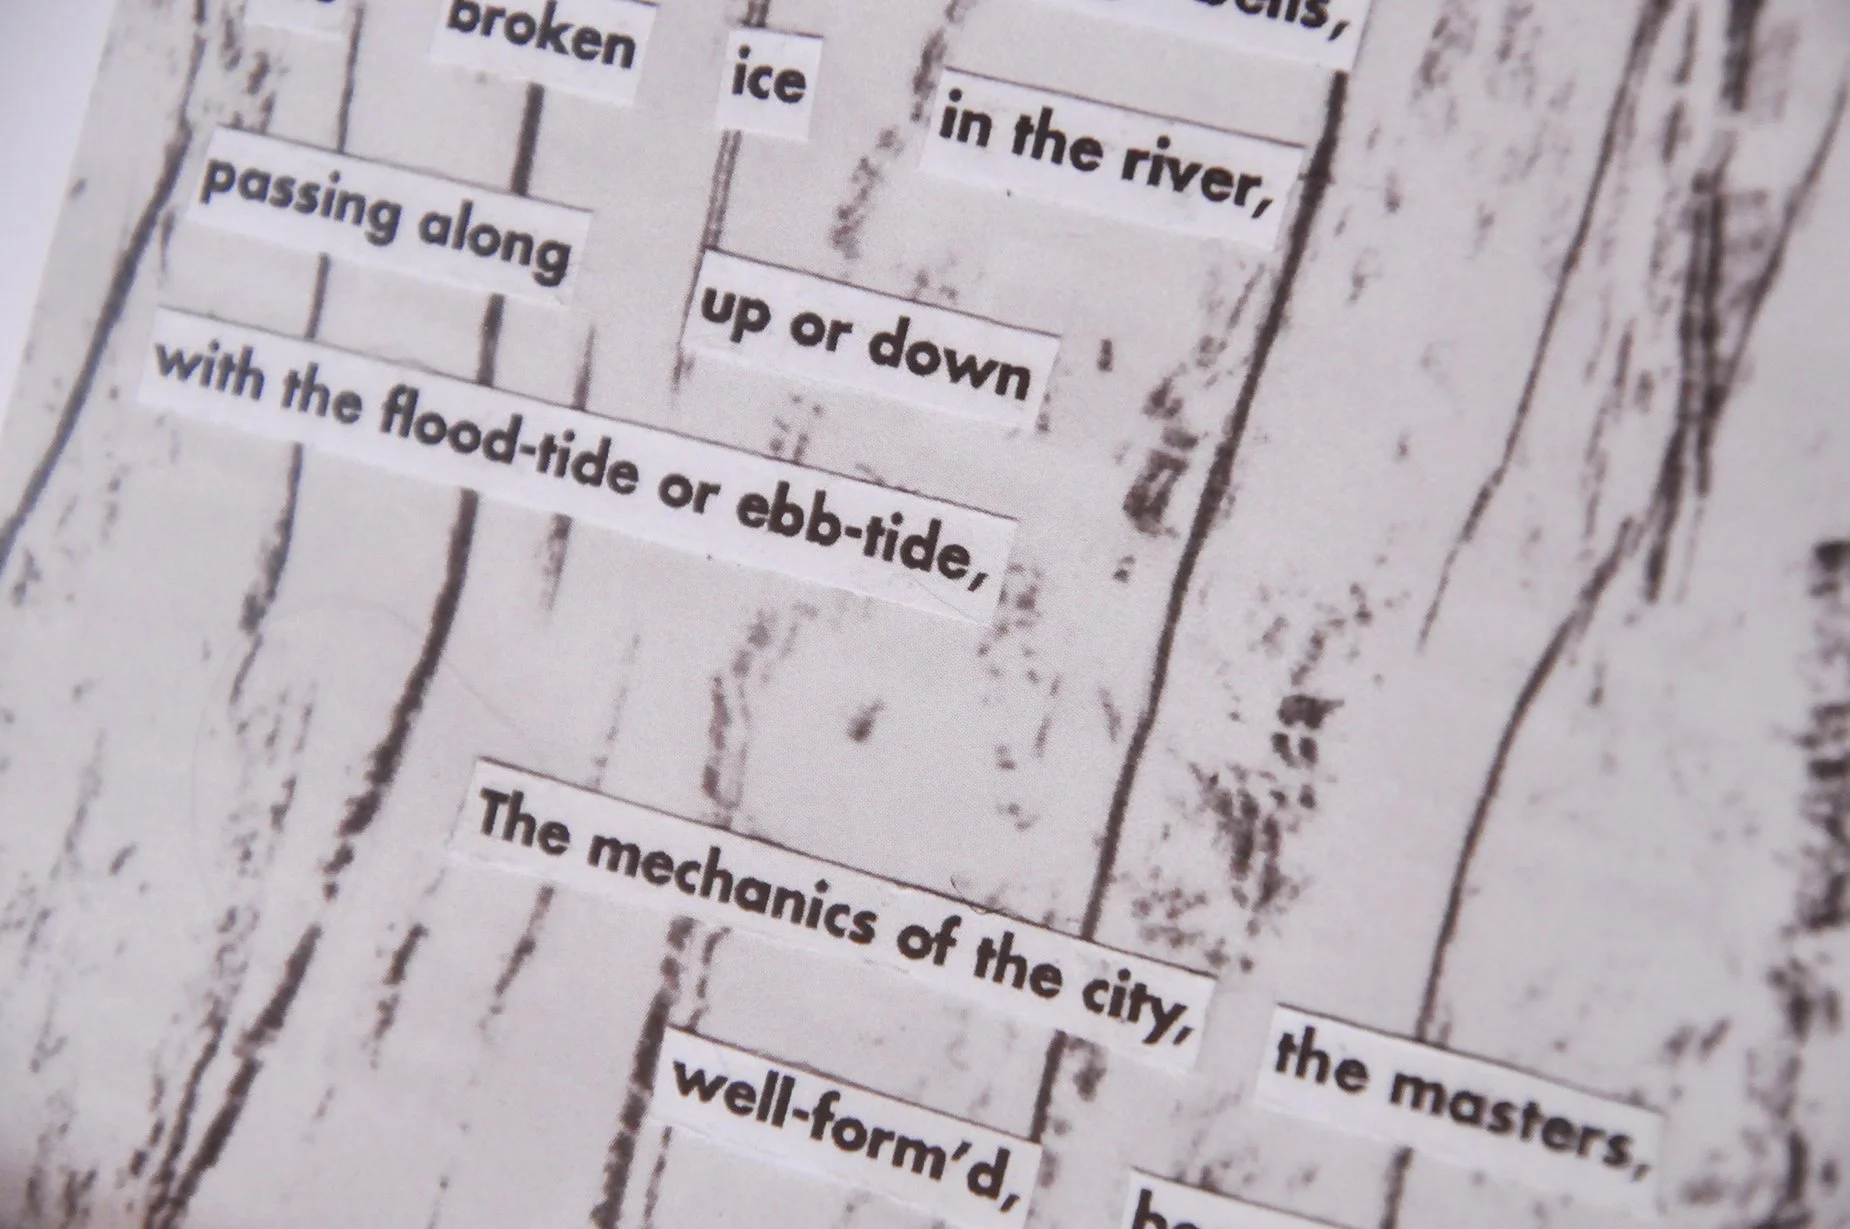 broken ice in the river,
passing along up or down
with the flood-tide or ebb-tide,
The mechanics of the city, the masters,
well-form'd,